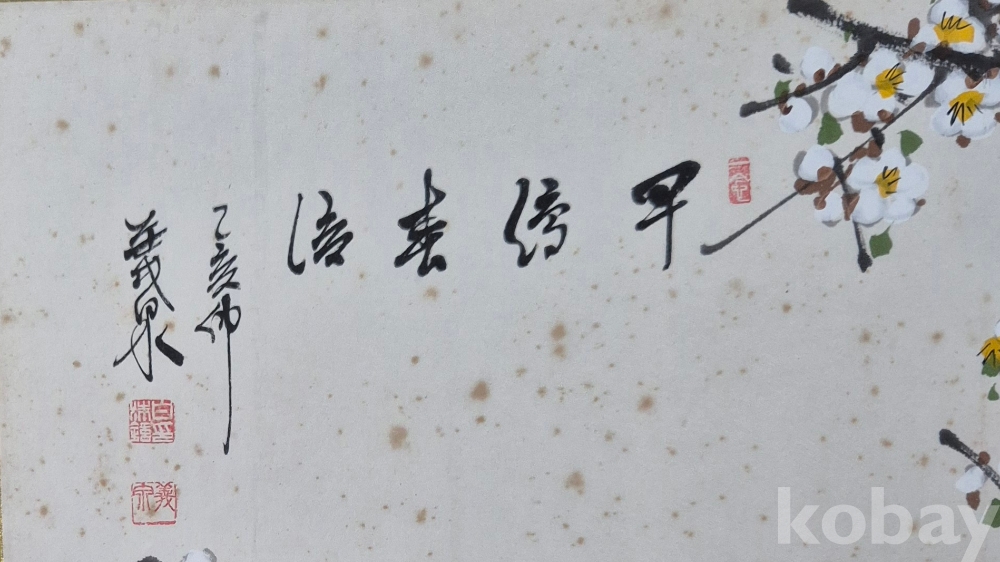 早傳春信
乙亥仲
義泉
義泉
kobay